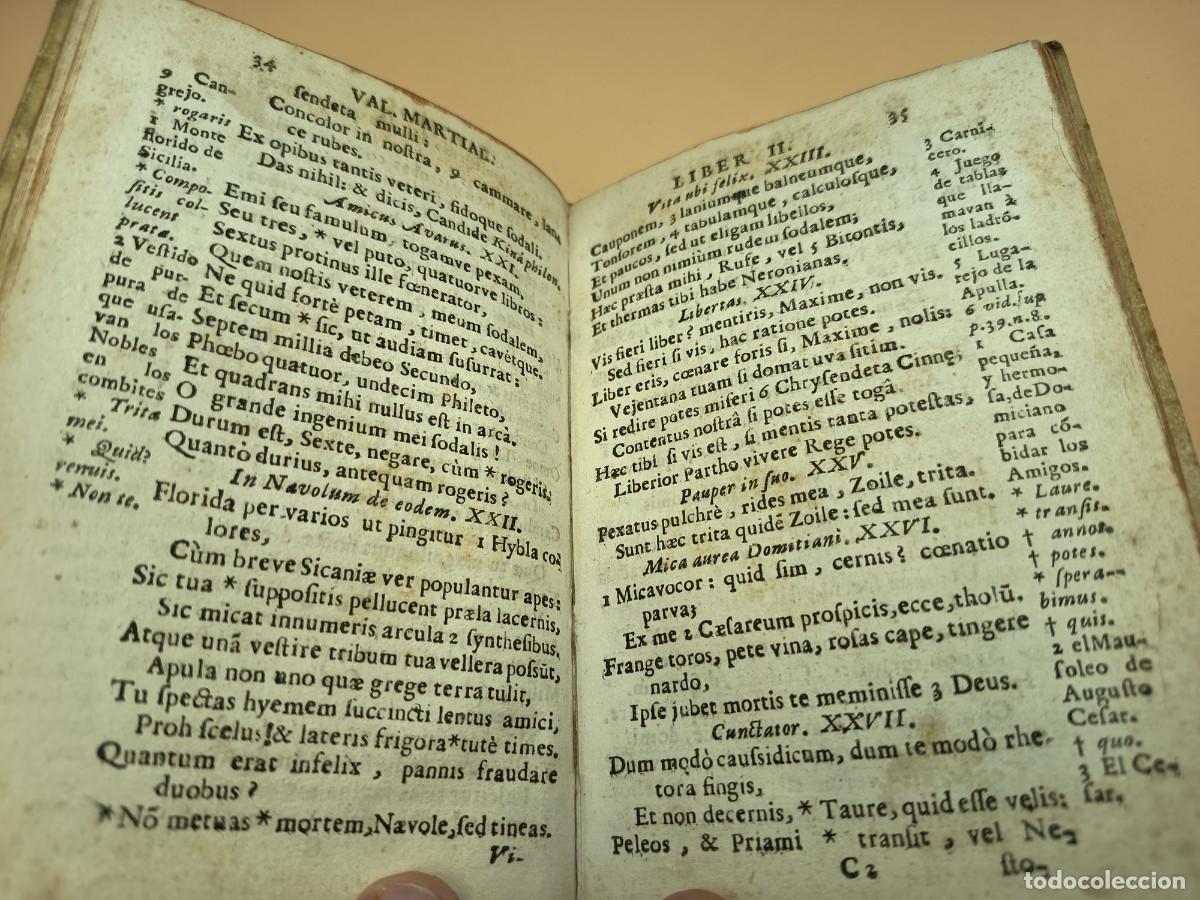 34
VAL. MARTIAL.
ſendeta mulli:
Concolor in noſtra, 9 cammare, lance
ce rubes.
Ex opibus tantis veteri, fidoque ſodali.
Das nihil: & dicis, Candide Kinaphilon.
Amicus Avarus. XXI.
Emi ſeu famulum, togamve pexam,
Seu tres, * vel puto, quatuorve libros:
Sextus protinus ille fœnerator,
Quem noſtis veterem, meum ſodalem,
Ne quid fortè petam, timet, cavétque.
Et ſecum * ſic, ut audiam ſuſurrat:
Septem millia debeo Secundo,
Phœbo quatuor, undecim Phileto,
Et quadrans mihi nullus eſt in arcà.
O grande ingenium mei ſodalis!
Durum eſt, Sexte, negare, cùm * rogeris;
Quantò durius, antequam rogeris?
In Navolum de eodem. XXII.
Florida per varios ut pingitur 1 Hybla co-
lores,
Cùm breve Sicaniæ ver populantur apes:
Sic tua * ſuppoſitis pellucent præla lacernis,
Sic micat innumeris arcula 2 ſyntheſibus.
Atque unâ veſtire tribum tua vellera poſsūt,
Apula non uno quæ grege terra tulit,
Tu ſpectas hyemem ſuccincti lentus amici,
Proh ſcelus! & lateris frigora * tutè times.
Quantum erat infelix, pannis fraudare
duobus?
* Nō metuas * mortem, Nævole, ſed tineas.
Vi-
9 Can-
grejo.
* rogaris
1 Monte
florido de
Sicilia.
* Compo-
ſitis col-
lucent
prata.
2 Veſtido
de pur-
pura de
que uſa-
van los
Nobles
en los
combites
* Trita
mei.
* Quid?
renuis.
* Non te.
35
LIBER II.
Vita ubi felix. XXIII.
Cauponem, 3 laniumque balneumque,
Tonſorem, 4 tabulamque, calculoſque,
Et paucos, ſed ut eligam libellos,
Unum non nimium rudem ſodalem;
Hæc præſta mihi, Rufe, vel 5 Bitontis,
Et thermas tibi habe Neronianas.
Libertas. XXIV.
Vis fieri liber? mentiris, Maxime, non vis.
Sed fieri ſi vis, hac ratione potes.
Liber eris, cœnare foris ſi, Maxime, nolis:
Vejentana tuam ſi domat uva ſitim.
Si redire potes miſeri 6 Chryſendeta Cinnę;
Contentus noſtrâ ſi potes eſſe togâ.
Hæc tibi ſi vis eſt, ſi mentis tanta poteſtas,
Liberior Partho vivere Rege potes.
Pauper in ſuo. XXV.
Pexatus pulchrè, rides mea, Zoile, trita.
Sunt hæc trita quidē Zoile: ſed mea ſunt.
Mica aurea Domitiani. XXVI.
1 Mica vocor: quid ſim, cernis? cœnatio
parva;
Ex me 2 Cæſareum proſpicis, ecce, tholū.
Frange toros, pete vina, roſas cape, tingere
nardo,
Ipſe jubet mortis te meminiſſe 3 Deus.
Cunctator. XXVII.
Dum modò cauſsidicum, dum te modò rhe-
tora fingis,
Et non decernis, * Taure, quid eſſe velis:
Peleos, & Priami * tranſit, vel Ne-
C 2
ſto-
3 Carni-
cero.
4 Juego
de tablas
que lla-
mavan à
los ladrō-
cillos.
5 Luga-
rejo de la
Apulla.
6 vid. ſup
p.39.n.8.
1 Caſa
pequeña,
y hermo-
ſa, de Do-
miciano
para cō-
bidar los
Amigos.
* Laure.
* tranſis.
† annos.
† potes.
* ſpera-
bimus.
† quis.
2 el Mau-
ſoleo de
Auguſto
Ceſar.
† quo.
3 El Ce-
ſar.
todocoleccion